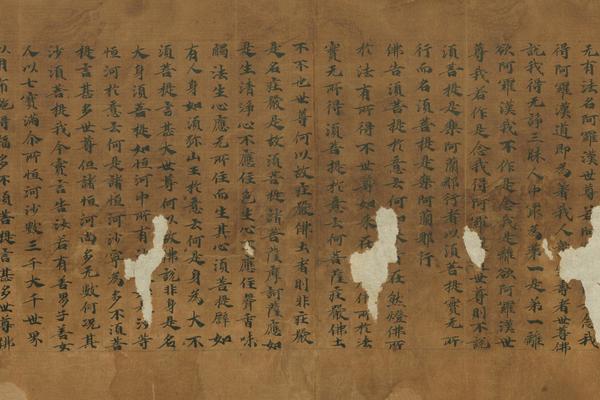 无有法名阿羅漢世尊若阿念我
得阿羅漢道即為著我人眾者世尊佛
說我得无諍三昧人中冣為第一是第一離
欲阿羅漢我不作是念我是離欲阿羅漢世
尊我若作是念我得阿羅世尊則不說
須菩提是樂阿蘭那行者以須菩提實无所
行而名須菩提是樂阿蘭那行
佛告須菩提於意云何如來在然燈佛所
於法有所得不世尊如來在佛所於法
實无所得須菩提於意云何菩薩莊嚴佛土
不不也世尊何以故莊嚴佛土者則非莊嚴
是名莊嚴是故須菩提諸菩薩摩訶薩應如
是生清淨心不應住色生心不應住聲香味
觸法生心應无所住而生其心須菩提譬如
有人身如須弥山王於意云何是身為大不
須菩提言甚大世尊何以故佛說非身是名
大身須菩提如恒河中所有沙等
恒河於意云何是諸恒河沙寧為多不須菩
提言甚多世尊但諸恒河尚多无數何況其
沙須菩提我今實言告汝若有善男子善女
人以七寶滿尒所恒河沙數三千大千世界
以用布施得福多不須菩提言甚多世尊佛